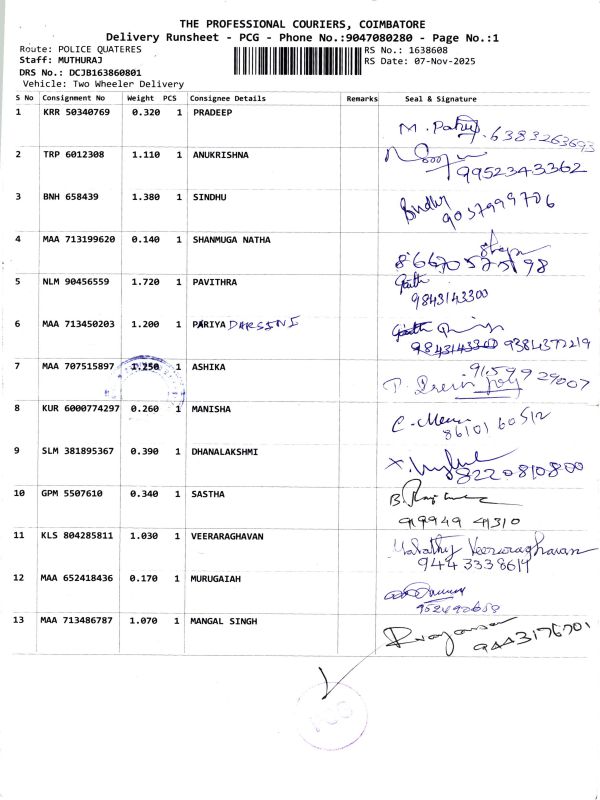 THE PROFESSIONAL COURIERS, COIMBATORE
Delivery Runsheet - PCG - Phone No.:9047080280 - Page No.:1
Route: POLICE QUATERES RS No.: 1638608
Staff: MUTHURAJ RS Date: 07-Nov-2025
DRS No.: DCJB163860801
Vehicle: Two Wheeler Delivery
S No Consignment No Weight PCS Consignee Details Remarks Seal & Signature
1 KRR 50340769 0.320 1 PRADEEP
6383263693
2 TRP 6012308 1.110 1 ANUKRISHNA
9952343362
3 BNH 658439 1.380 1 SINDHU
9037999706
4 MAA 713199620 0.140 1 SHANMUGA NATHA
5 NLM 90456559 1.720 1 PAVITHRA
9843143300
6 MAA 713450203 1.200 1 PARIYA DARSINI
9843143300 9384377219
7 MAA 707515897 1.250 1 ASHIKA
9159929007
8 KUR 6000774297 0.260 1 MANISHA
8610160512
9 SLM 381895367 0.390 1 DHANALAKSHMI
8220810800
10 GPM 5507610 0.340 1 SASTHA
11 KLS 804285811 1.030 1 VEERARAGHAVAN
Malathy Veeraraghavan
9443338614
12 MAA 652418436 0.170 1 MURUGAIAH
13 MAA 713486787 1.070 1 MANGAL SINGH
9443176701
PCG